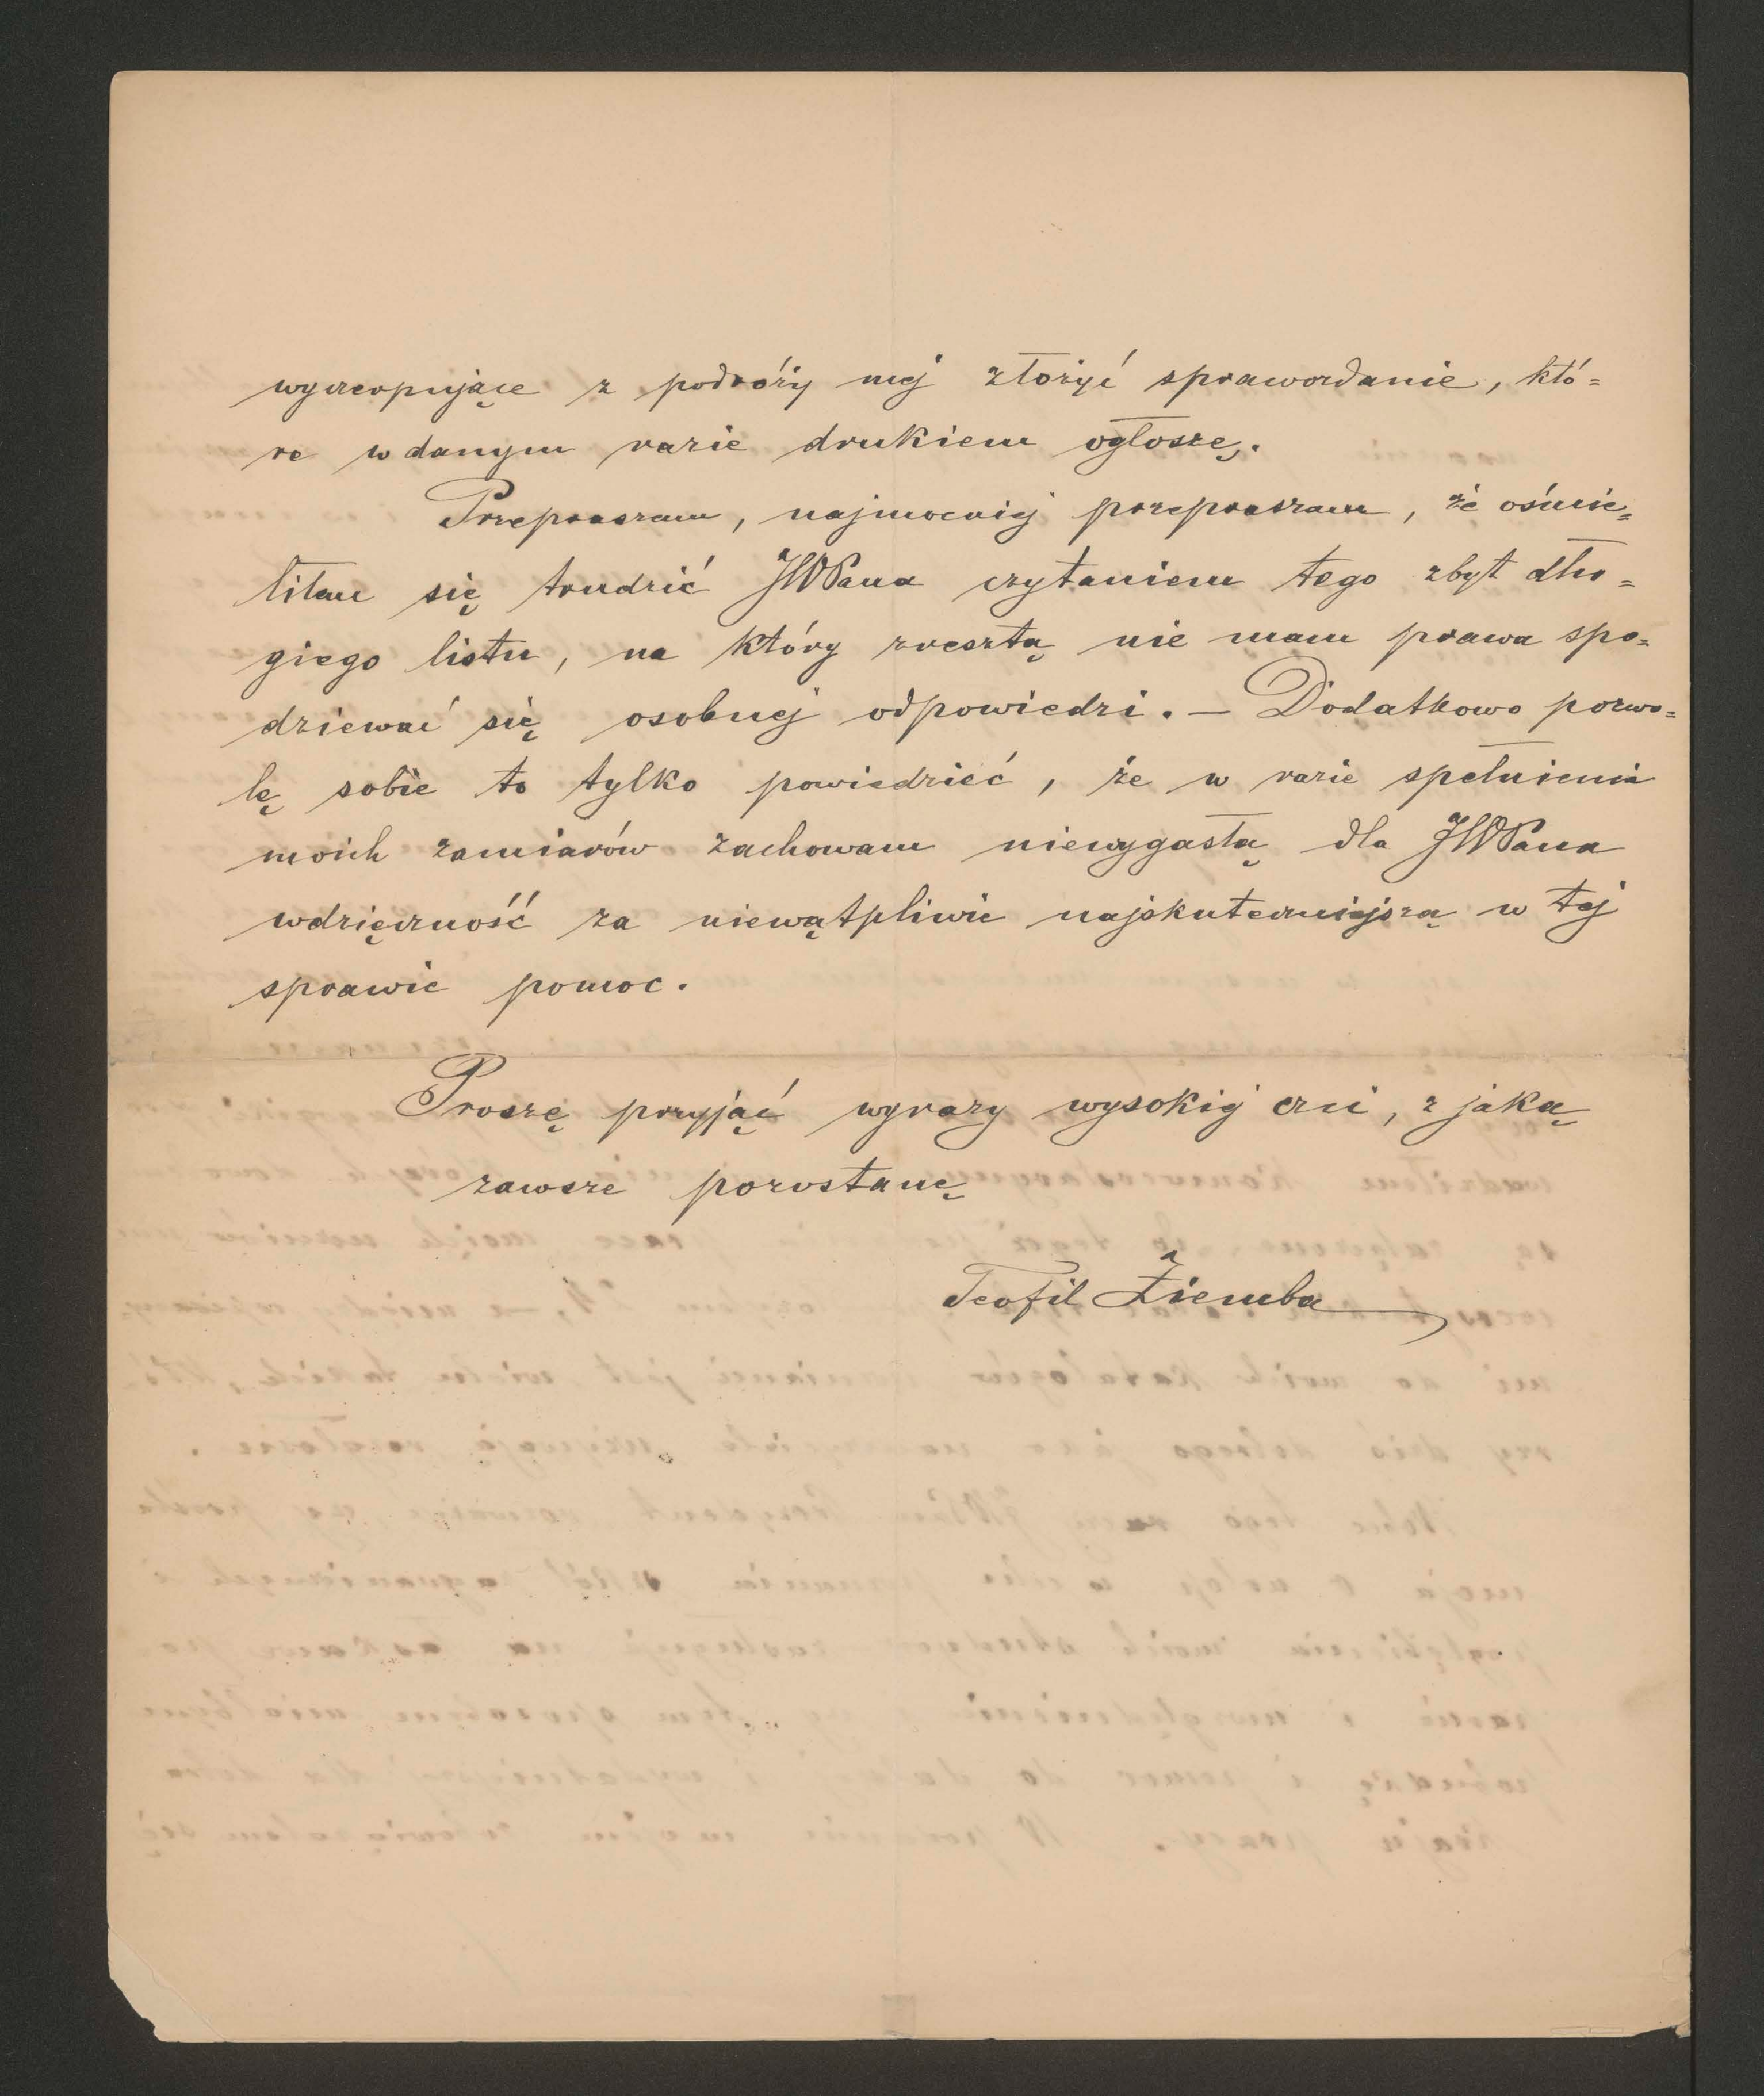 wyczerpujące z podróży mej złożyć sprawozdanie, któ=
re w danym razie drukiem ogłoszę.
Przepraszam, najmocniej przepraszam, że ośmie=
liłem się trudzić JWPana czytaniem tego zbyt dłu=
giego listu, na który zresztą nie mam prawa spo=
dziewać się osobnej odpowiedzi. — Dodatkowo pozwo=
lę sobie to tylko powiedzieć, że w razie spełnienia
moich zamiarów zachowam niewygasłą dla JWPana
wdzięczność za niewątpliwie najskuteczniejszą w tej
sprawie pomoc.
Proszę przyjąć wyrazy wysokiej czci, z jaką
zawsze pozostanę
Teofil Ziemba